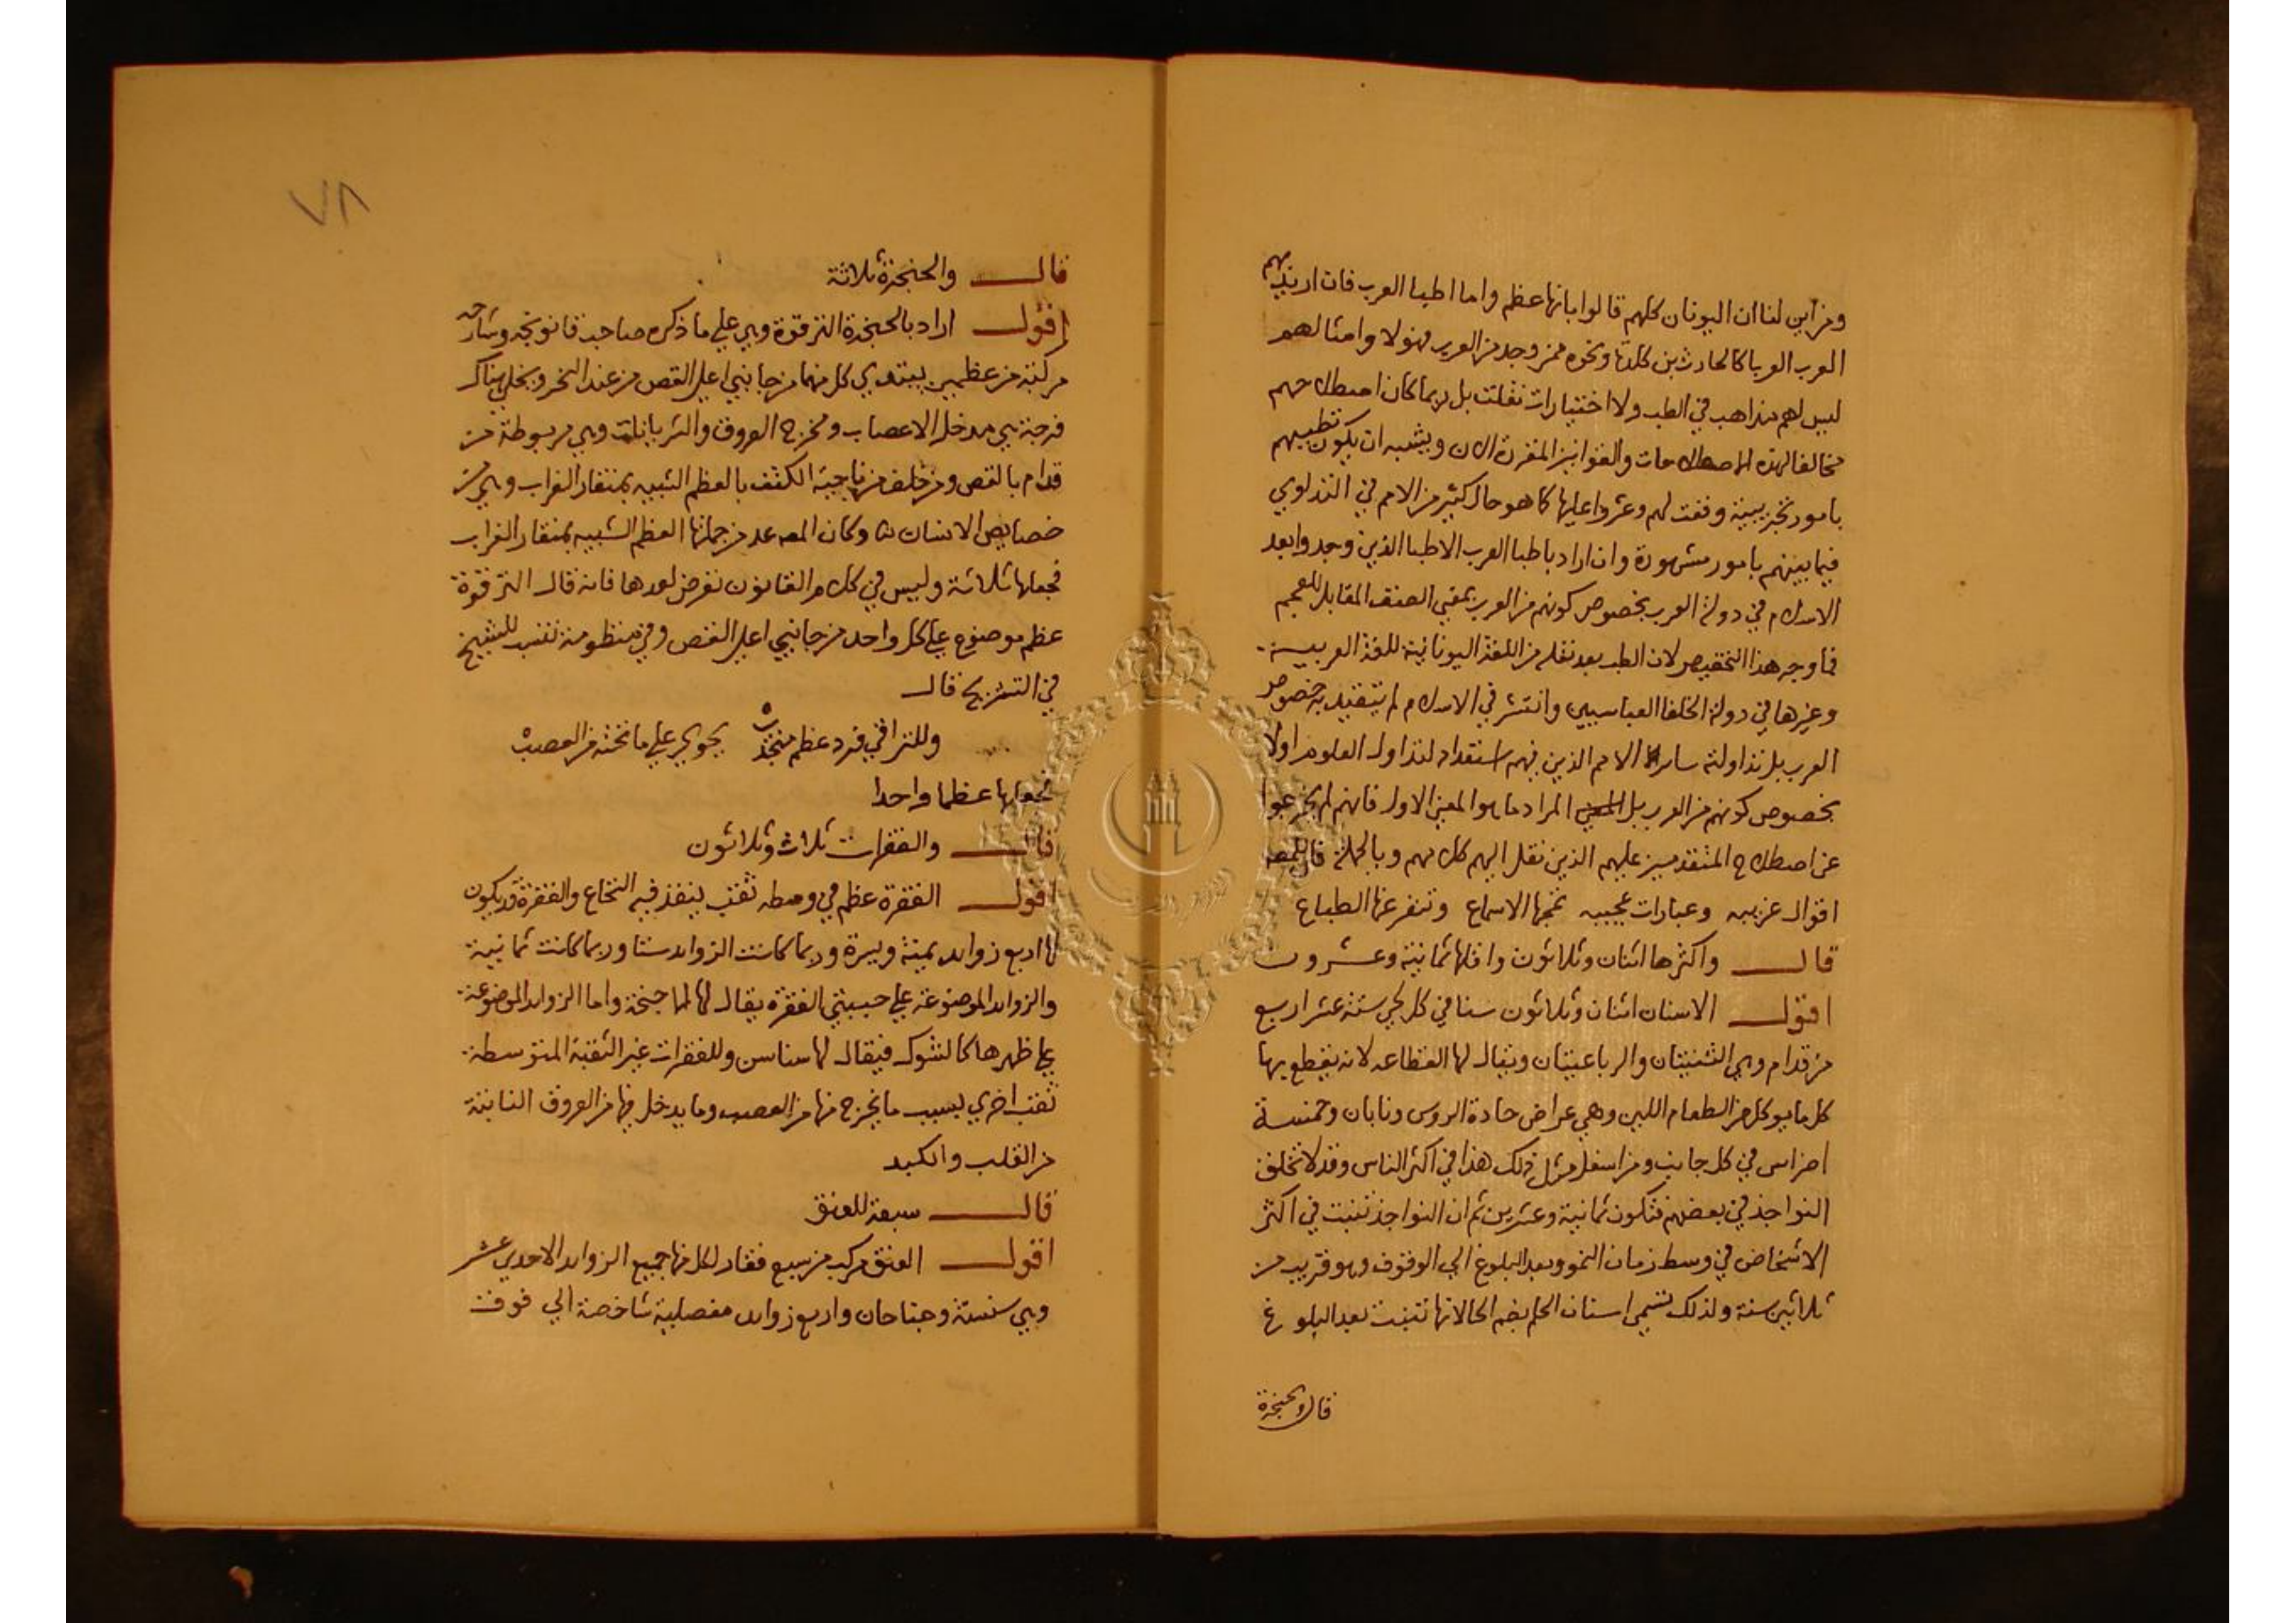 ومن أين لنا ان اليونان كلهم قالوا بانها عظم واما اطبا العرب فان اريد بهم
العرب العربا كالحارث بن كلدة ونحوه ممن وجد من العرب فهولا وامثالهم
ليس لهم مذاهب في الطب ولا اختيارات نقلت بل ربما كان اصطلاحهم
مخالفا لهذه الاصطلاحات والقوانين المقررة الان ويشبه ان يكون تطبيبهم
بامور تجريبية وقفت لهم وعثروا عليها كما هو حال كثير من الامم في التداوي
فيما بينهم بامور مشهورة وان اراد باطبا العرب الاطبا الذين وجدوا بعد
الاسلام في دولة العرب بخصوص كونهم من العرب بمعني الصنف المقابل للعجم
فما وجه هذا التخصيص لان الطب بعد نقله من اللغة اليونانية للغة العربية
وغيرها في دولة الخلفا العباسيين وانتشر في الاسلام لم يتقيد به خصوص
العرب بل تداولته ساير الامم الذين فيهم استعداد لتداول العلوم اولا
بخصوص كونهم من العرب بل المراد ما هو المعني الاول فانهم لم يخرجوا
عن اصطلاح المتقدمين عليهم الذين نقل اليهم كلامهم وبالجملة فان للمص
اقوال غريبه وعبارات عجيبه تمجها الاسماع وتنفر عنها الطباع
قال واكثرها اثنان وثلاثون واقلها ثمانية وعشرون
اقول الاسنان اثنان وثلاثون سنا في كل لحي ستة عشر اربع
من قدام وهي الثنيتان والرباعيتان ويقال لها القطاعه لانه يقطع بها
كل ما يوكل من الطعام اللين وهي عراض حادة الروس ونابان وخمسة
اضراس في كل جانب ومن اسفل مثل ذلك هذا في اكثر الناس وقد لا تخلق
النواجذ في بعضهم فتكون ثمانية وعشرين ثم ان النواجذ تنبت في اكثر
الاشخاص في وسط زمان النمو وبعد البلوغ الي الوقوف وهو قريب من
ثلاثين سنة ولذلك تسمي اسنان الحلم بضم الحا لانها تنبت بعد البلوغ
قال والحنجرة
٧٨
قال والحنجرة ثلاثة
اقول اراد بالحنجرة الترقوة وهي علي ما ذكره صاحب قانونجه وشارحه
مركبة من عظمين يبتدي كل منهما من جانبي اعلي القص من عند النحر ويخلي هناك
فرجة هي مدخل الاعصاب ومخرج العروق والشريانات وهي مربوطة من
قدام بالقص ومن خلف من ناحية الكتف بالعظم الشبيه بمنقار الغراب وهي من
خصايص الانسان وكان المص عد من جملتها العظم الشبيه بمنقار الغراب
فجعلها ثلاثة وليس في كلام القانون تعرض لعددها فانه قال الترقوة
عظم موضوع علي كل واحد من جانبي اعلي القص وفي منظومة تنسب للشيخ
في التشريح قال
وللتراقي فرد عظم منحدب يحوي علي ما تحته من العصب
فجعلها عظما واحدا
قال والفقرات ثلاث وثلاثون
اقول الفقرة عظم في وسطه ثقب ينفذ فيه النخاع والفقرة قد يكون
لها اربع زوايد يمنة ويسرة وربما كانت الزوايد ستا وربما كانت ثمانية
والزوايد الموضوعة علي جنبتي الفقرة يقال لها اجنحة واما الزوايد الموضوعة
علي ظهرها كالشوك فيقال لها سناسن وللفقرات غير الثقبة المتوسطة
ثقب اخري بسبب ما يخرج منها من العصب وما يدخل فيها من العروق النابتة
من القلب والكبد
قال سبعة للعنق
اقول العنق مركب من سبع فقار لكل منها جميع الزوايد الاحدي عشر
وهي سنسنة وجناحان واربع زوايد مفصلية شاخصة الي فوق